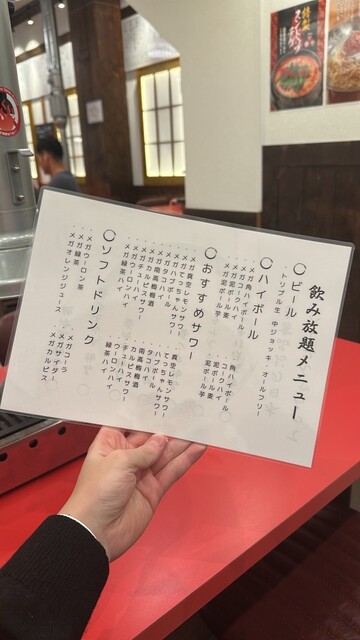 飲み放題メニュー
○ビール
・トリプル生 中ジョッキ ・オールフリー
○ハイボール
・メガ角ハイボール ・角ハイボール
・メガコークハイ ・コークハイ
・メガ泥ボール麦 ・泥ボール麦
・メガ泥ボール芋 ・泥ボール芋
○おすすめサワー
・メガ真空レモンサワー ・真空レモンサワー
・メガてっちゃんサワー ・てっちゃんサワー
・メガハブボール ・ハブボール
・メガタコハイ ・タコハイ
・メガ南高梅酒 ・南高梅酒
・メガカルピスサワー ・カルピスサワー
・メガチューハイ ・チューハイ
・メガウーロンハイ ・ウーロンハイ
・メガ緑茶ハイ ・緑茶ハイ
○ソフトドリンク
・メガウーロン茶 ・メガコーラ
・メガ緑茶 ・メガサイダー
・メガオレンジジュース ・メガカルピス